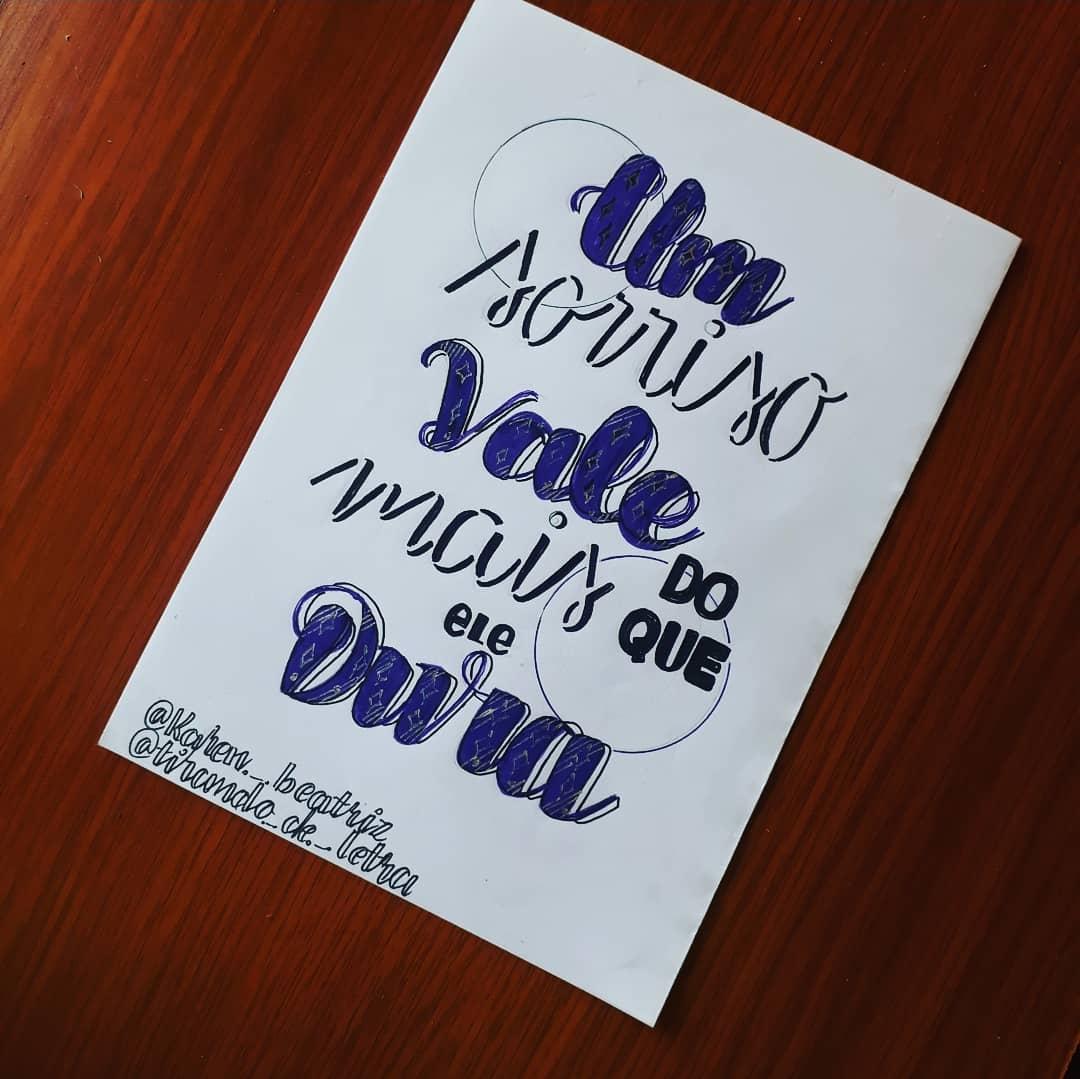 Um
sorriso
Vale
mais
DO
QUE
ele
Dura
@Karen._.beatriz
@tirando_ck._.letra